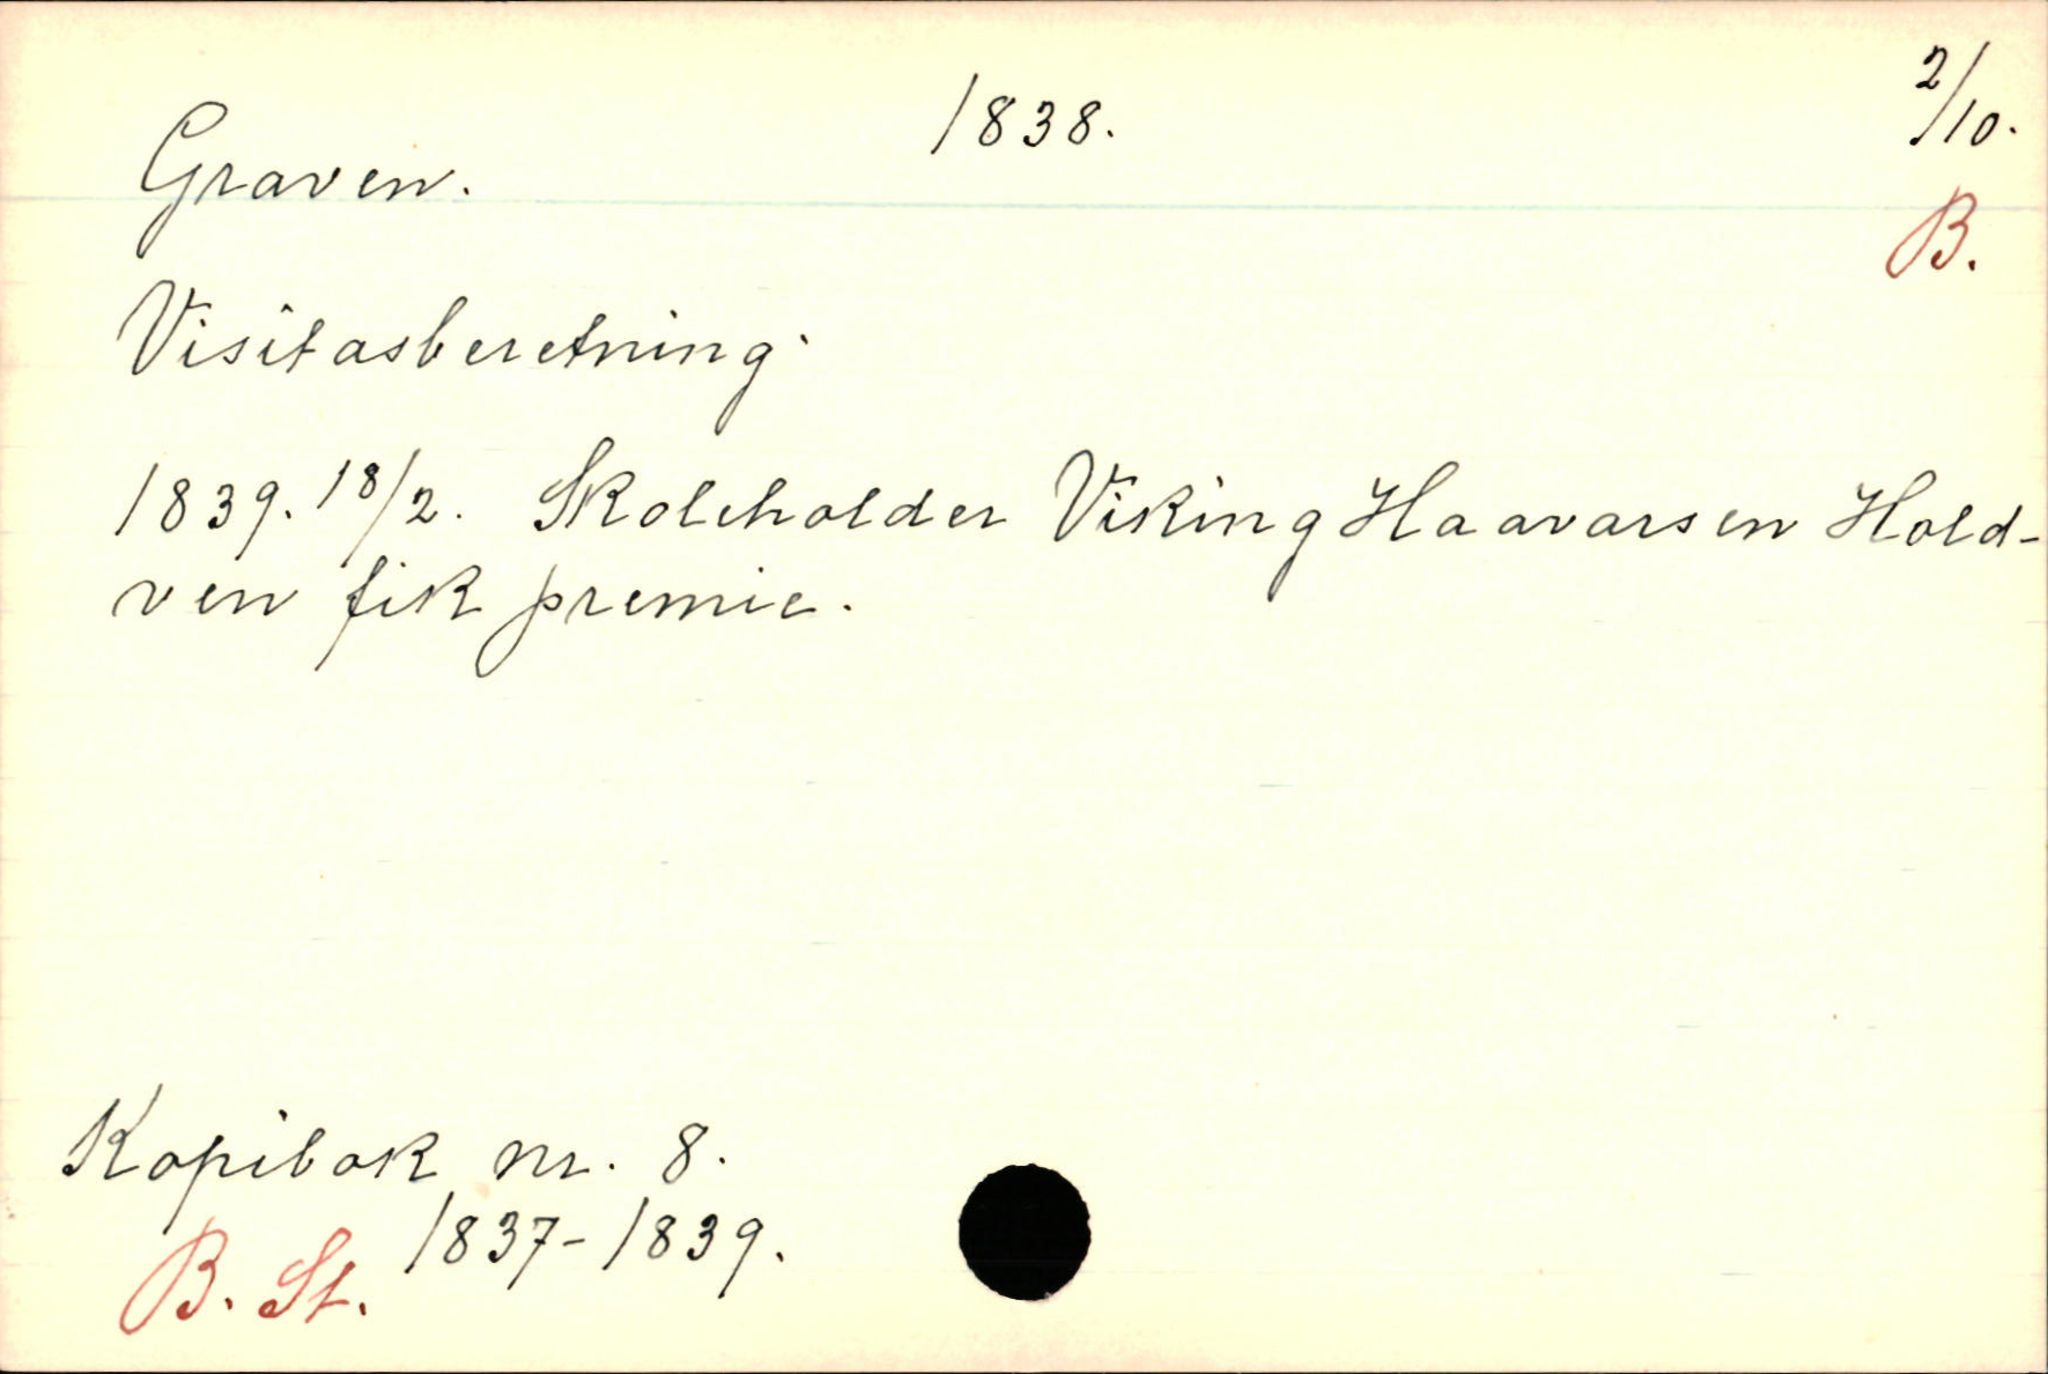 Graven. 1838. 2/10.
B.
Visitasberetning.
1839. 18/2. Skoleholder Viking Haavarsen Hold-
ven fik premie.
Kopibok nr. 8.
1837-1839.
B. St.